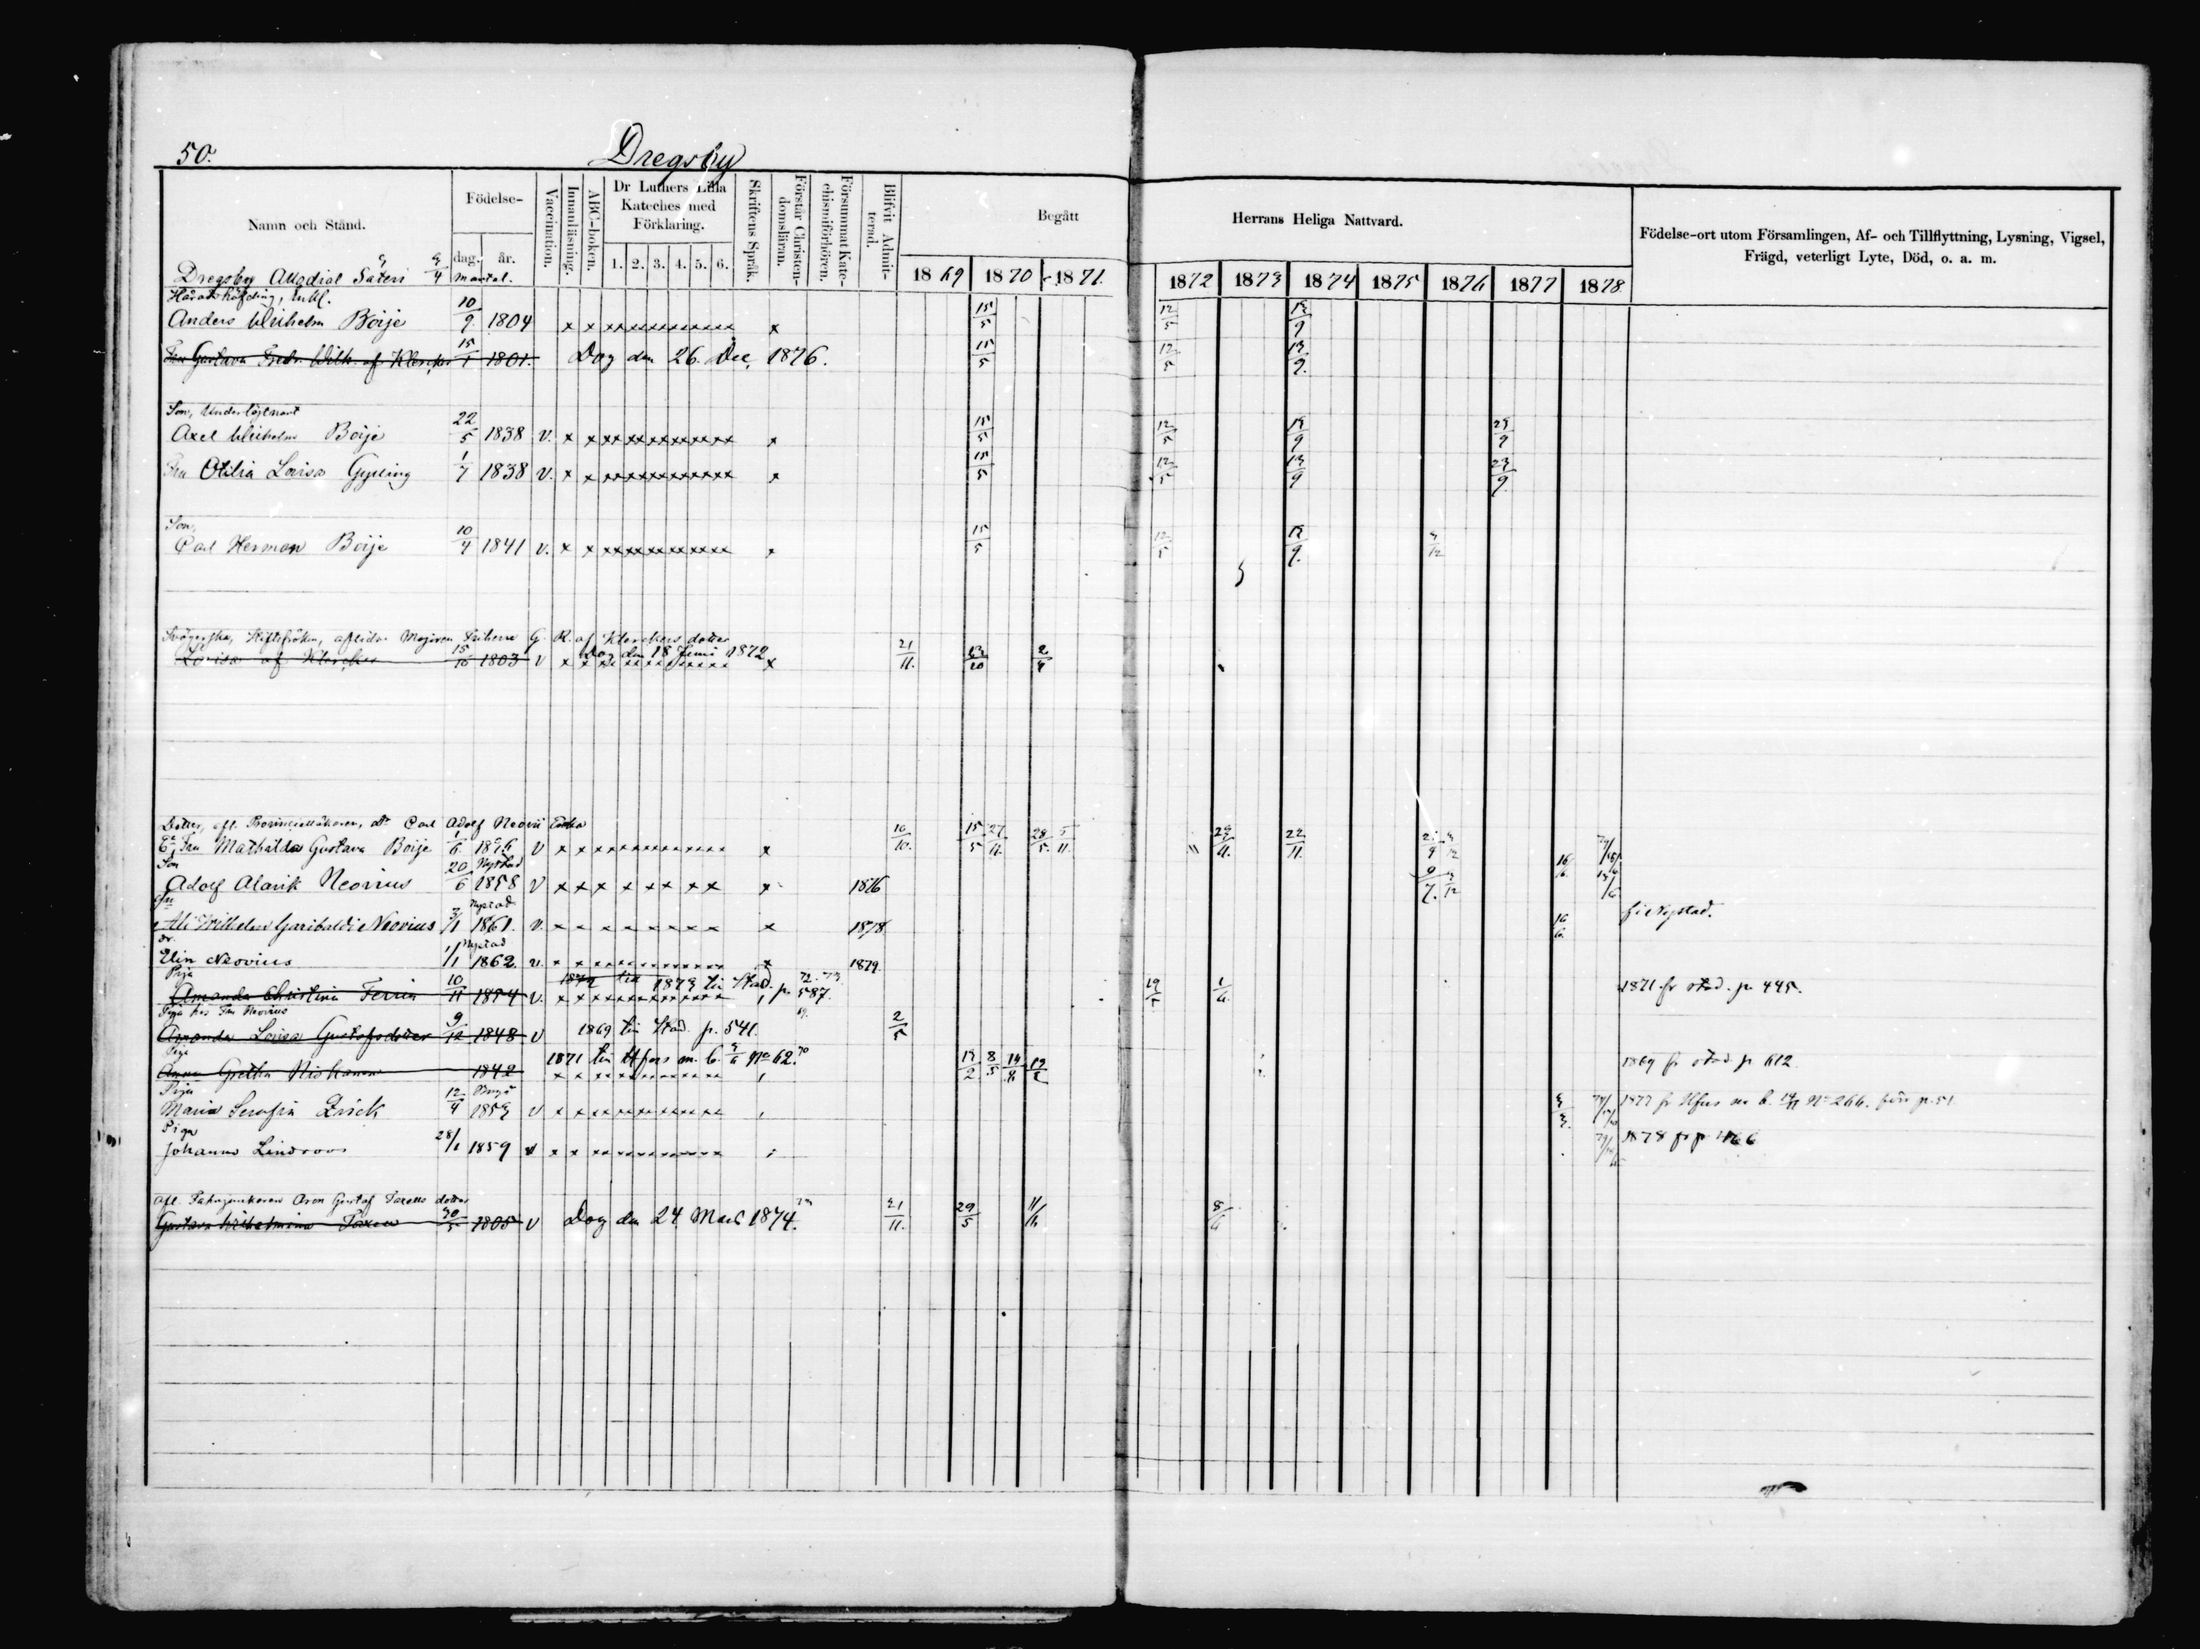 50.
Dregsby
Namn och Stånd.
Födelse-
dag. år.
Vaccination.
Innanläsning.
ABC-boken.
Dr Luthers Lilla Kateches med Förklaring.
1. 2. 3. 4. 5. 6.
Skriftens Språk.
Förstår Christendomsläran.
Försummat Katechismiförhören.
Blifvit Admitterad.
Begått Herrans Heliga Nattvard.
1869 1870 1871. 1872 1873 1874 1875 1876 1877 1878.
Födelse-ort utom Församlingen, Af- och Tillflyttning, Lysning, Vigsel,
Frägd, veterligt Lyte, Död, o. a. m.
Dregsby Allodial Säteri mantal.
Häradshöfding,
Anders Wilhelm Boije 10/9 1804 x x x 15/5 12/5 13/9
Fru Gustava Fredr. Wilh. af Klercker 15/1 1801. Dog den 26 Dec. 1876. 15/5 12/5 13/9
Son, Underlöjtnant
Axel Wilhelm Boije 22/5 1838 v. x x x 15/5 12/5 13/9 23/9
Fru Otilia Lovisa Gypling 1/7 1838 v. x x x 15/5 12/5 13/9 23/9
Son,
Carl Herman Boije 10/4 1841 v. x x x 15/5 12/5 13/9. 3/12
Svägerska, Stiftsfröken, aflidne Majoren Friherre G. R. af Klerckers dotter
Lovisa af Klercker 15/10 1803 v Dog den 18 Juni 1872 x 21/11. 23/10 2/4
Dotter, afl. Provincialläkaren, Dr Carl Adolf Neovii Enka
Fru Mathilda Gustava Boije 1/6 v x x x 10/10. 15/5 27/11 28/5 5/11 22/11.
Son Nystad
Adolf Alarik Neovius 20/6 1858 v x x x x x x x x 1876 9/7. 3/12
Nystad
Ali Wilhelm Garibaldi Neovius 3/1 1861. v. x x x x x x x x x 1878 16/6. f. i Nystad.
Nystad
Elin Neovius 1/1 1862. v. x x x 1879.
Piga
Amanda Christina Ferrin 10/11 1854 v. 1873 till Stad. p. 587. 19/5 1871 fr stad. p. 445.
Piga hos Fru Neovius
Amanda Lovisa Gustafsdotter 9/12 1848 v 1869 till Stad p. 541. 2/5
Piga
Anna Gretha Niskanen 1842 1871 till Hfors m. b. No 62. 8/5 1869 fr stad. p 612
Piga Borgå
Maria Serafia Zrick 12/4 1859 v x x 1877 fr Hfors m b. No 266. förr p. 51
Piga
Johanna Lindroos 28/1 1859 v x x 1878 fr p. 166
afl. Fahnjunkaren Aron Gustaf Taxells dotter
Gustava Wilhelmina Taxell 30/5 1805 v Dog den 24 Mars 1874. 21/11. 29/5 11/6